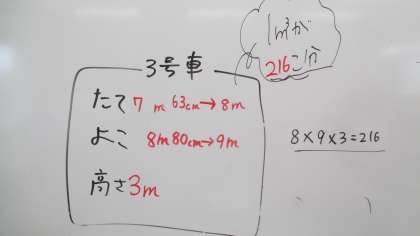 1m³が
216こ分
3号車
たて 7m 63cm→8m
よこ 8m80cm→9m
高さ3m
8×9×3=216